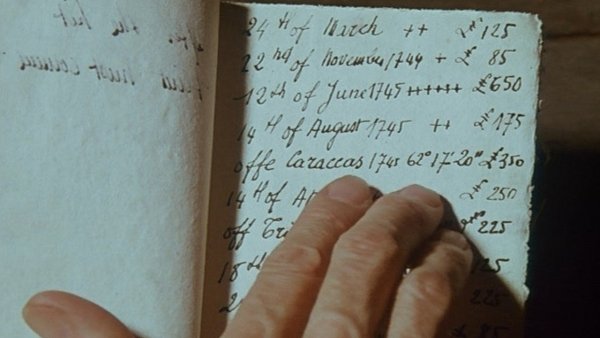 24th of March ++ £ 125
22nd of November 1744 + £ 85
12th of June 1745 ++++++ £650
14th of August 1745 ++ £175
offe Caraccas 1745 62° 17' 20" £350
14th of £ 250
off £ 225
18th 125
225
85